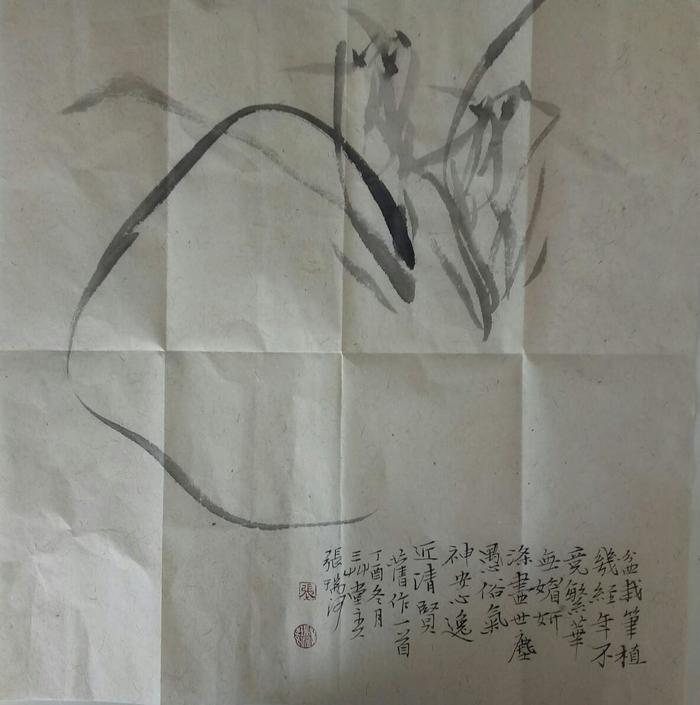 盆栽筆植
幾經年不
竞繁華
無媢妍
滌盡世塵
愚俗氣
神安心逸
近清賢
作一首
丁酉冬月
三艸堂主
張瑞河
張